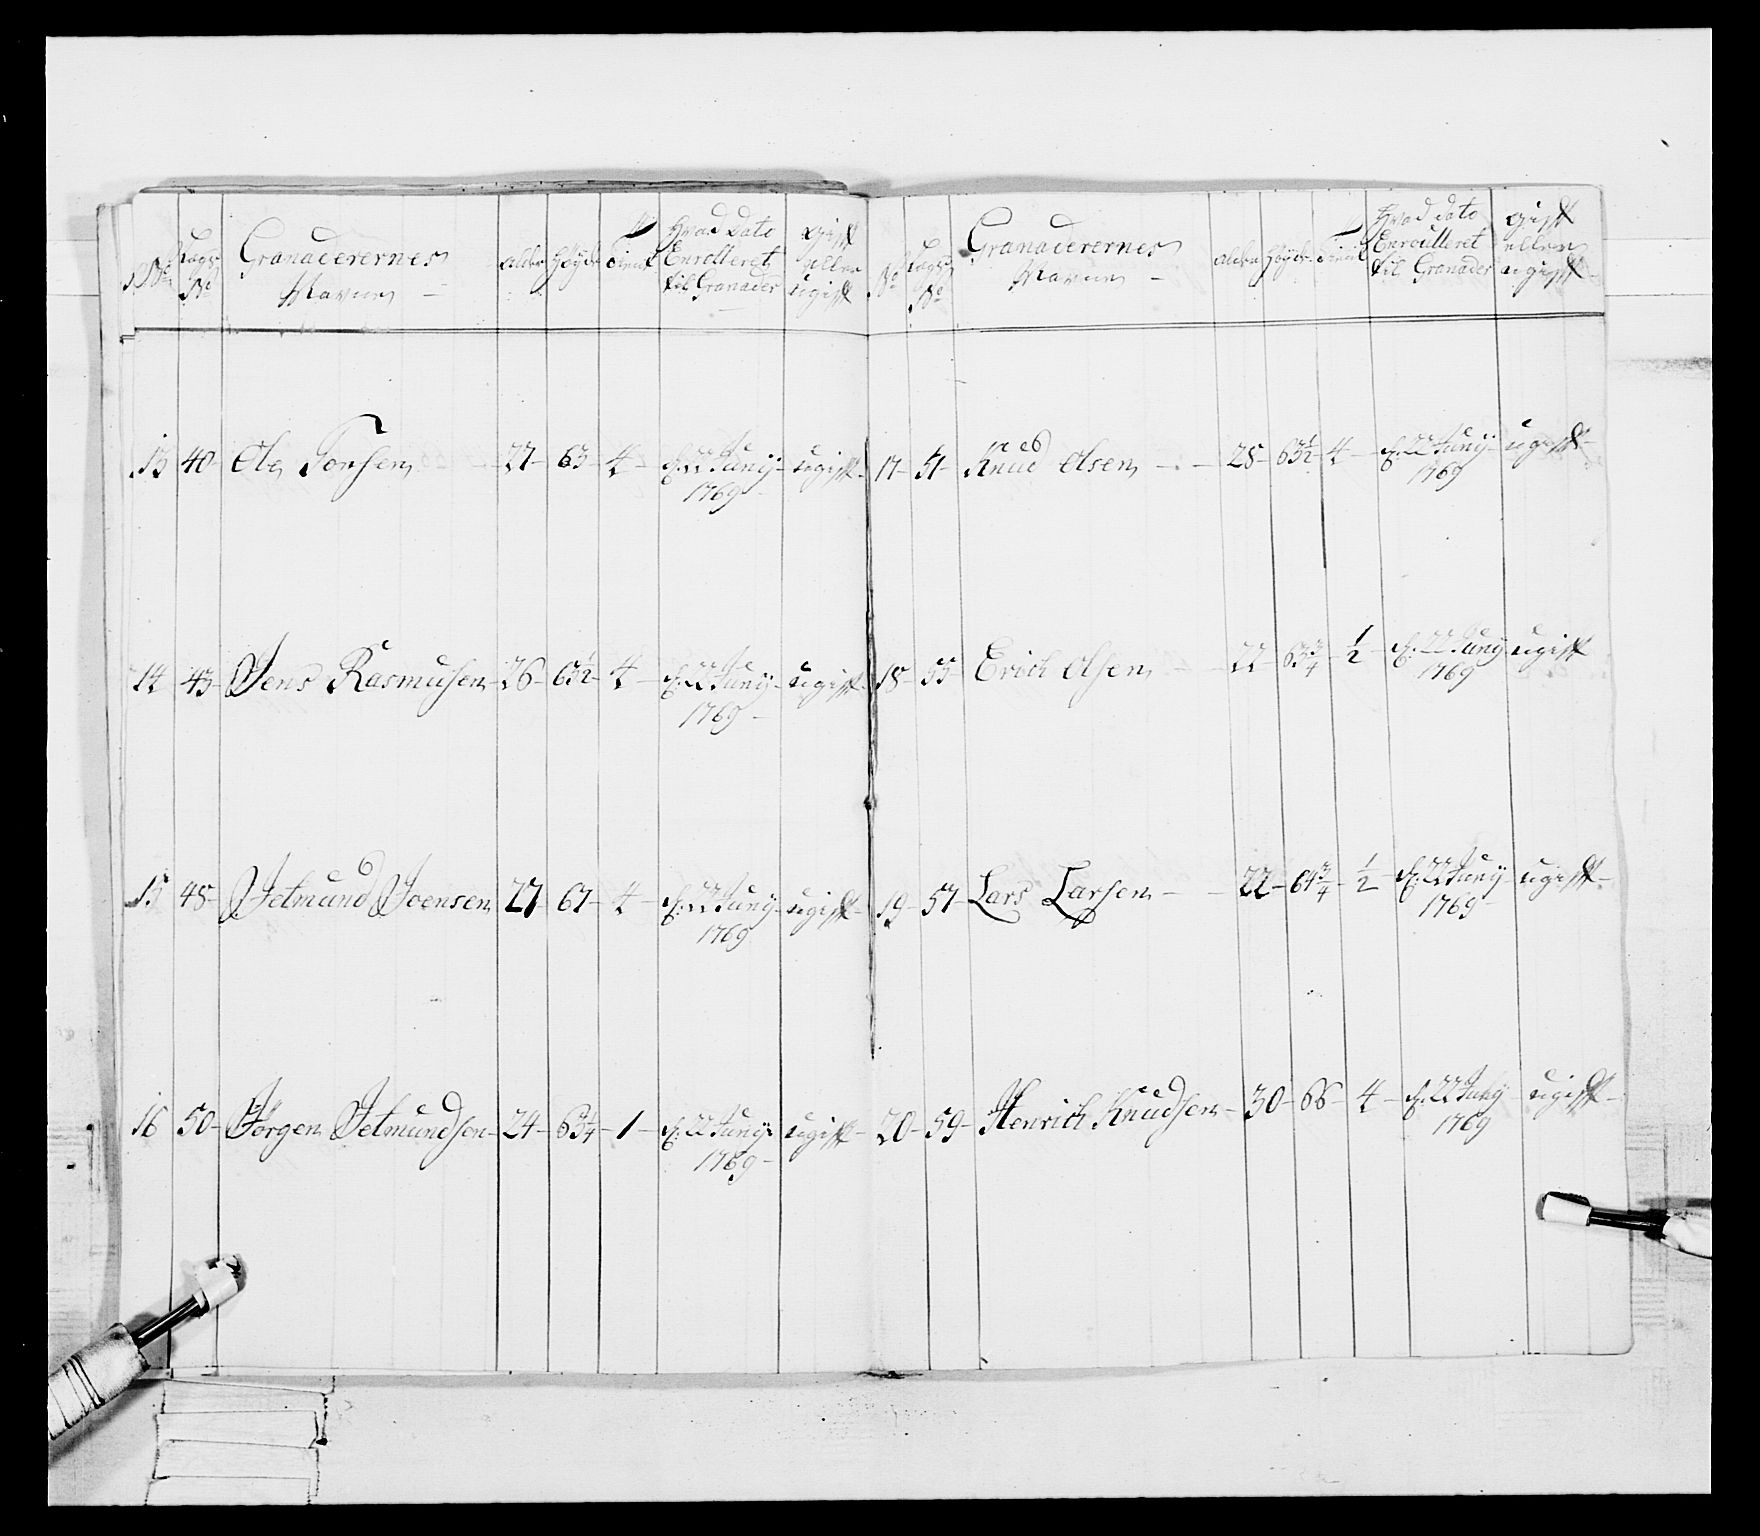 No Lægs No Granaderernes Navne Alder Høyde Tient Hvad Dato Enrolleret til Granader Gift eller ugift
13 40 Ole Tonsen 27 63 4 d: 22 Junij 1769 ugift
14 43 Jens Rasmusen 26 63½ 4 d: 22 Junij 1769 ugift
15 48 Jetmund Joensen 27 67 4 d: 22 Junij 1769 ugift
16 50 Jörgen Jetmundsen 24 63¼ 1 d: 22 Junij 1769 ugift
No Lægs No Granaderernes Navne Alder Høyde Tient Hvad dato Enroulleret til Granader Gift eller ugift
17 51 Knud Olsen 28 63½ 4 d: 22 Junij 1769 ugift
18 55 Erich Olsen 22 63¾ ½ d: 22 Juny 1769 ugift
19 57 Lars Larsen 22 64¾ ½ d: 22 Junij 1769 ugift
20 59 Henrich Knudsen 30 66 4 d: 22 Juny 1769 ugift